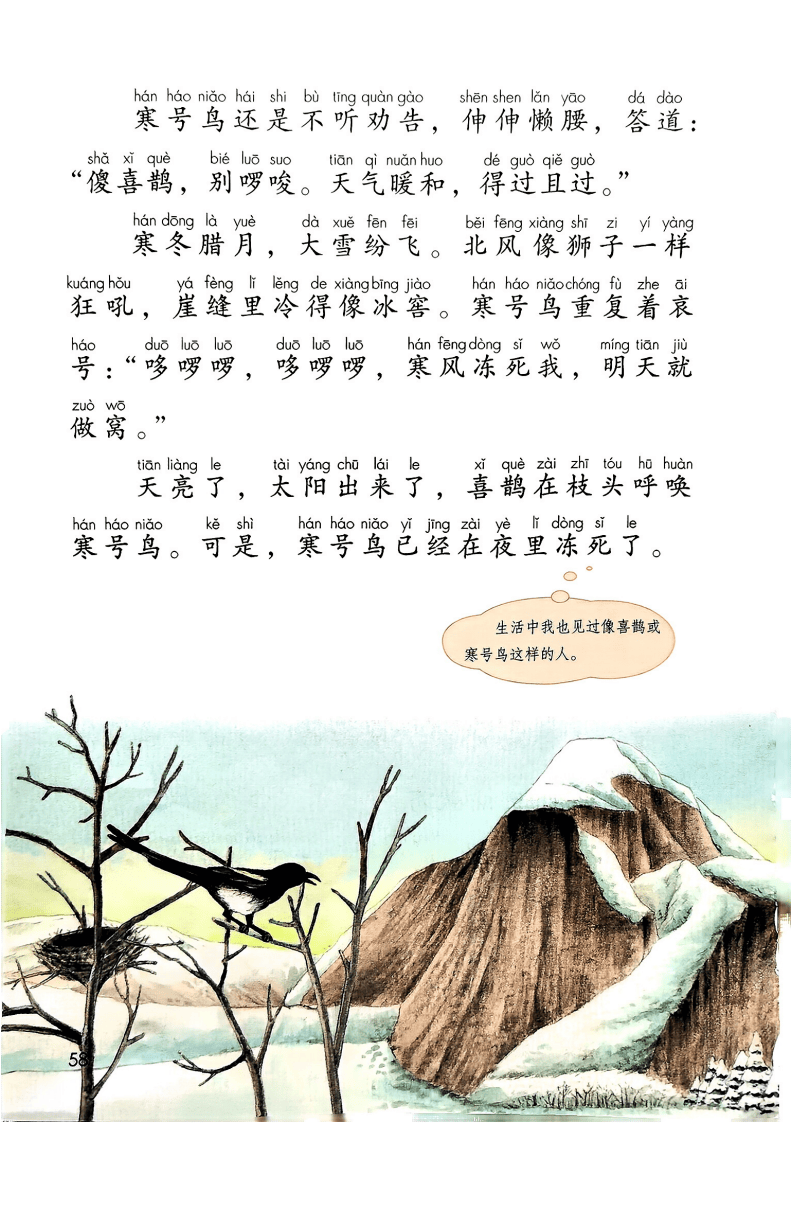 hán háo niǎo hái shi bù tīng quàn gào shēn shen lǎn yāo dá dào
寒号鸟还是不听劝告，伸伸懒腰，答道：
shǎ xǐ què bié luō suo tiān qì nuǎn huo dé guò qiě guò
“傻喜鹊，别啰唆。天气暖和，得过且过。”
hán dōng là yuè dà xuě fēn fēi běi fēng xiàng shī zi yí yàng
寒冬腊月，大雪纷飞。北风像狮子一样
kuáng hǒu yá fèng lǐ lěng de xiàng bīng jiào hán háo niǎo chóng fù zhe āi
狂吼，崖缝里冷得像冰窖。寒号鸟重复着哀
háo duō luō luō duō luō luō hán fēng dòng sǐ wǒ míng tiān jiù
号：“哆啰啰，哆啰啰，寒风冻死我，明天就
zuò wō
做窝。”
tiān liàng le tài yáng chū lái le xǐ què zài zhī tóu hū huàn
天亮了，太阳出来了，喜鹊在枝头呼唤
hán háo niǎo kě shì hán háo niǎo yǐ jīng zài yè lǐ dòng sǐ le
寒号鸟。可是，寒号鸟已经在夜里冻死了。
生活中我也见过像喜鹊或
寒号鸟这样的人。
58